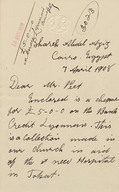 Sharch Abdul Aziz
Cairo. Egypt
7 April 1908
Dear Mr. Peet
Enclosed is a cheque
for £5-0-0 on the
Credit Lyonnais. This
is a collection made in
our church in aid
of the new Hospital
in Tokat.